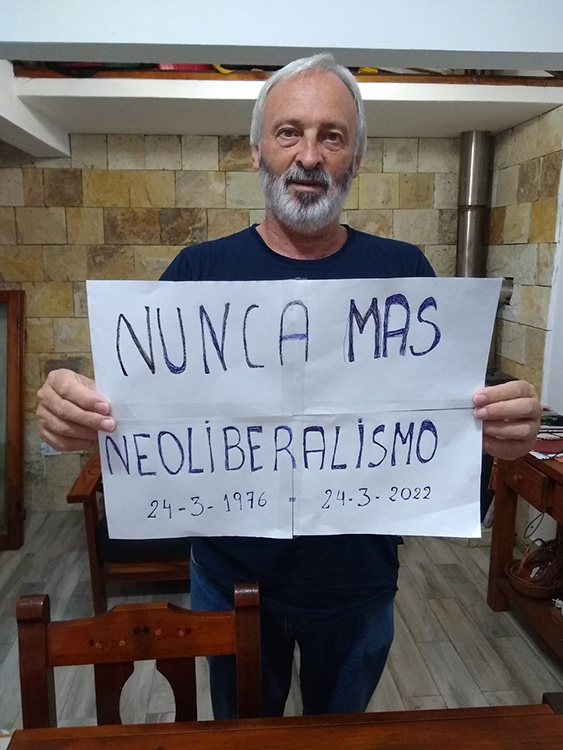 NUNCA MAS
NEOLIBERALISMO
24-3-1976 - 24-3-2022